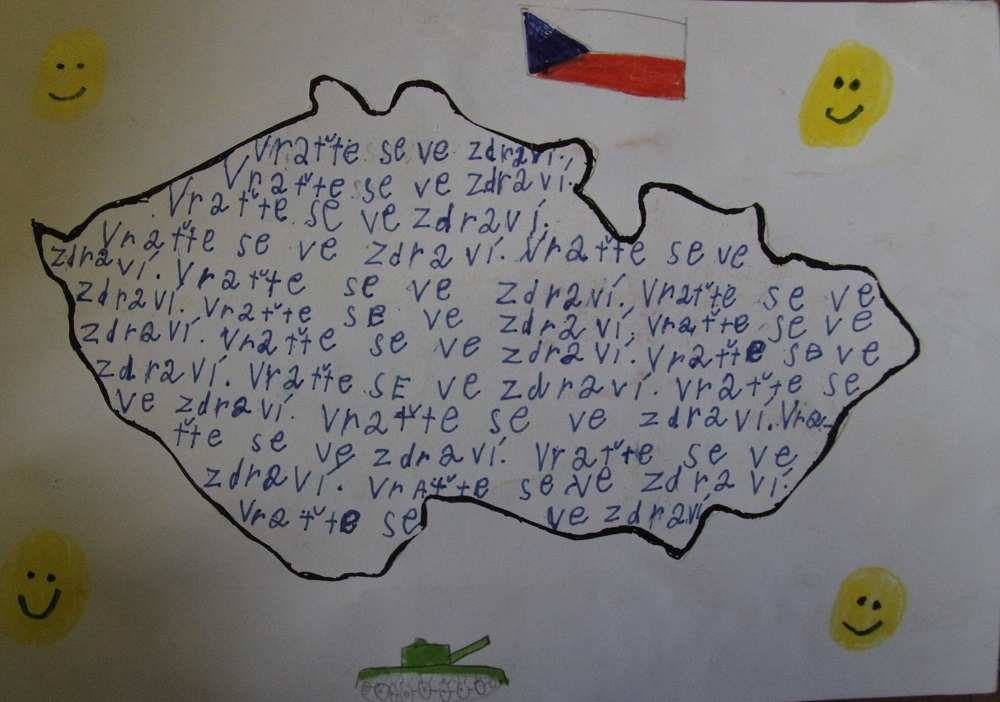 Vraťťe se ve zdraví.
Vraťte se ve zdraví.
Vraťte se ve zdraví.
Vraťte se ve zdraví. Vraťte se ve
zdraví. Vraťte se ve zdraví. Vraťte se ve
zdraví. Vraťte se ve zdraví. Vraťte se ve
zdraví. Vraťte se ve zdraví. Vraťte se ve
zdraví. Vraťte SE ve zdraví. Vraťte se
ve zdraví. Vraťte se ve zdraví. Vra-
ťte se ve zdraví. Vraťte se ve
zdraví. VrAťte se ve zdraví.
Vraťte se ve zdraví